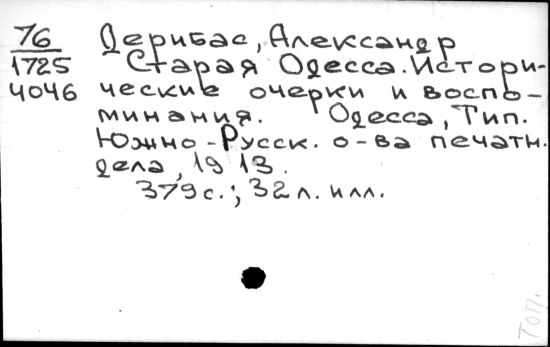 76 Дерибас, Александр
1725 Старая Одесса. Истори-
4046 ческие очерки и воспо-
минания. Одесса, Тип.
Южно-Русск. о-ва печатн.
дела, 1913.
379 с.; 32 л. илл.
Топ.